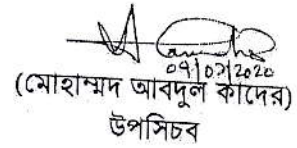 04/02/2020
(মোহাম্মদ আবদুল কাদের)
উপসিচব